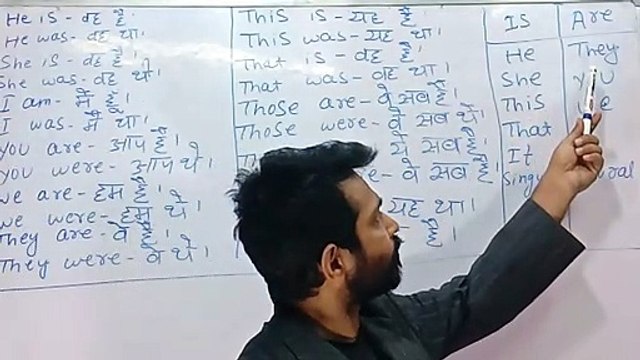 He is - वह है
He was - वह था।
She is - वह है।
She was - वह थी
I am - मैं हूँ।
I was - मैं था।
You are - आप हैं।
You were - आप थे।
we are - हम हैं
we were - हम थे।
They are - वे हैं।
They were - वे थे।
This is - यह है
This was - यह था।
That is - वह है।
That was - वह था।
Those are - वे सब हैं।
Those were - वे सब थे।
ये सब हैं।
वे सब हैं
यह था।
है।
Is Are
He They
She You
This
That
It